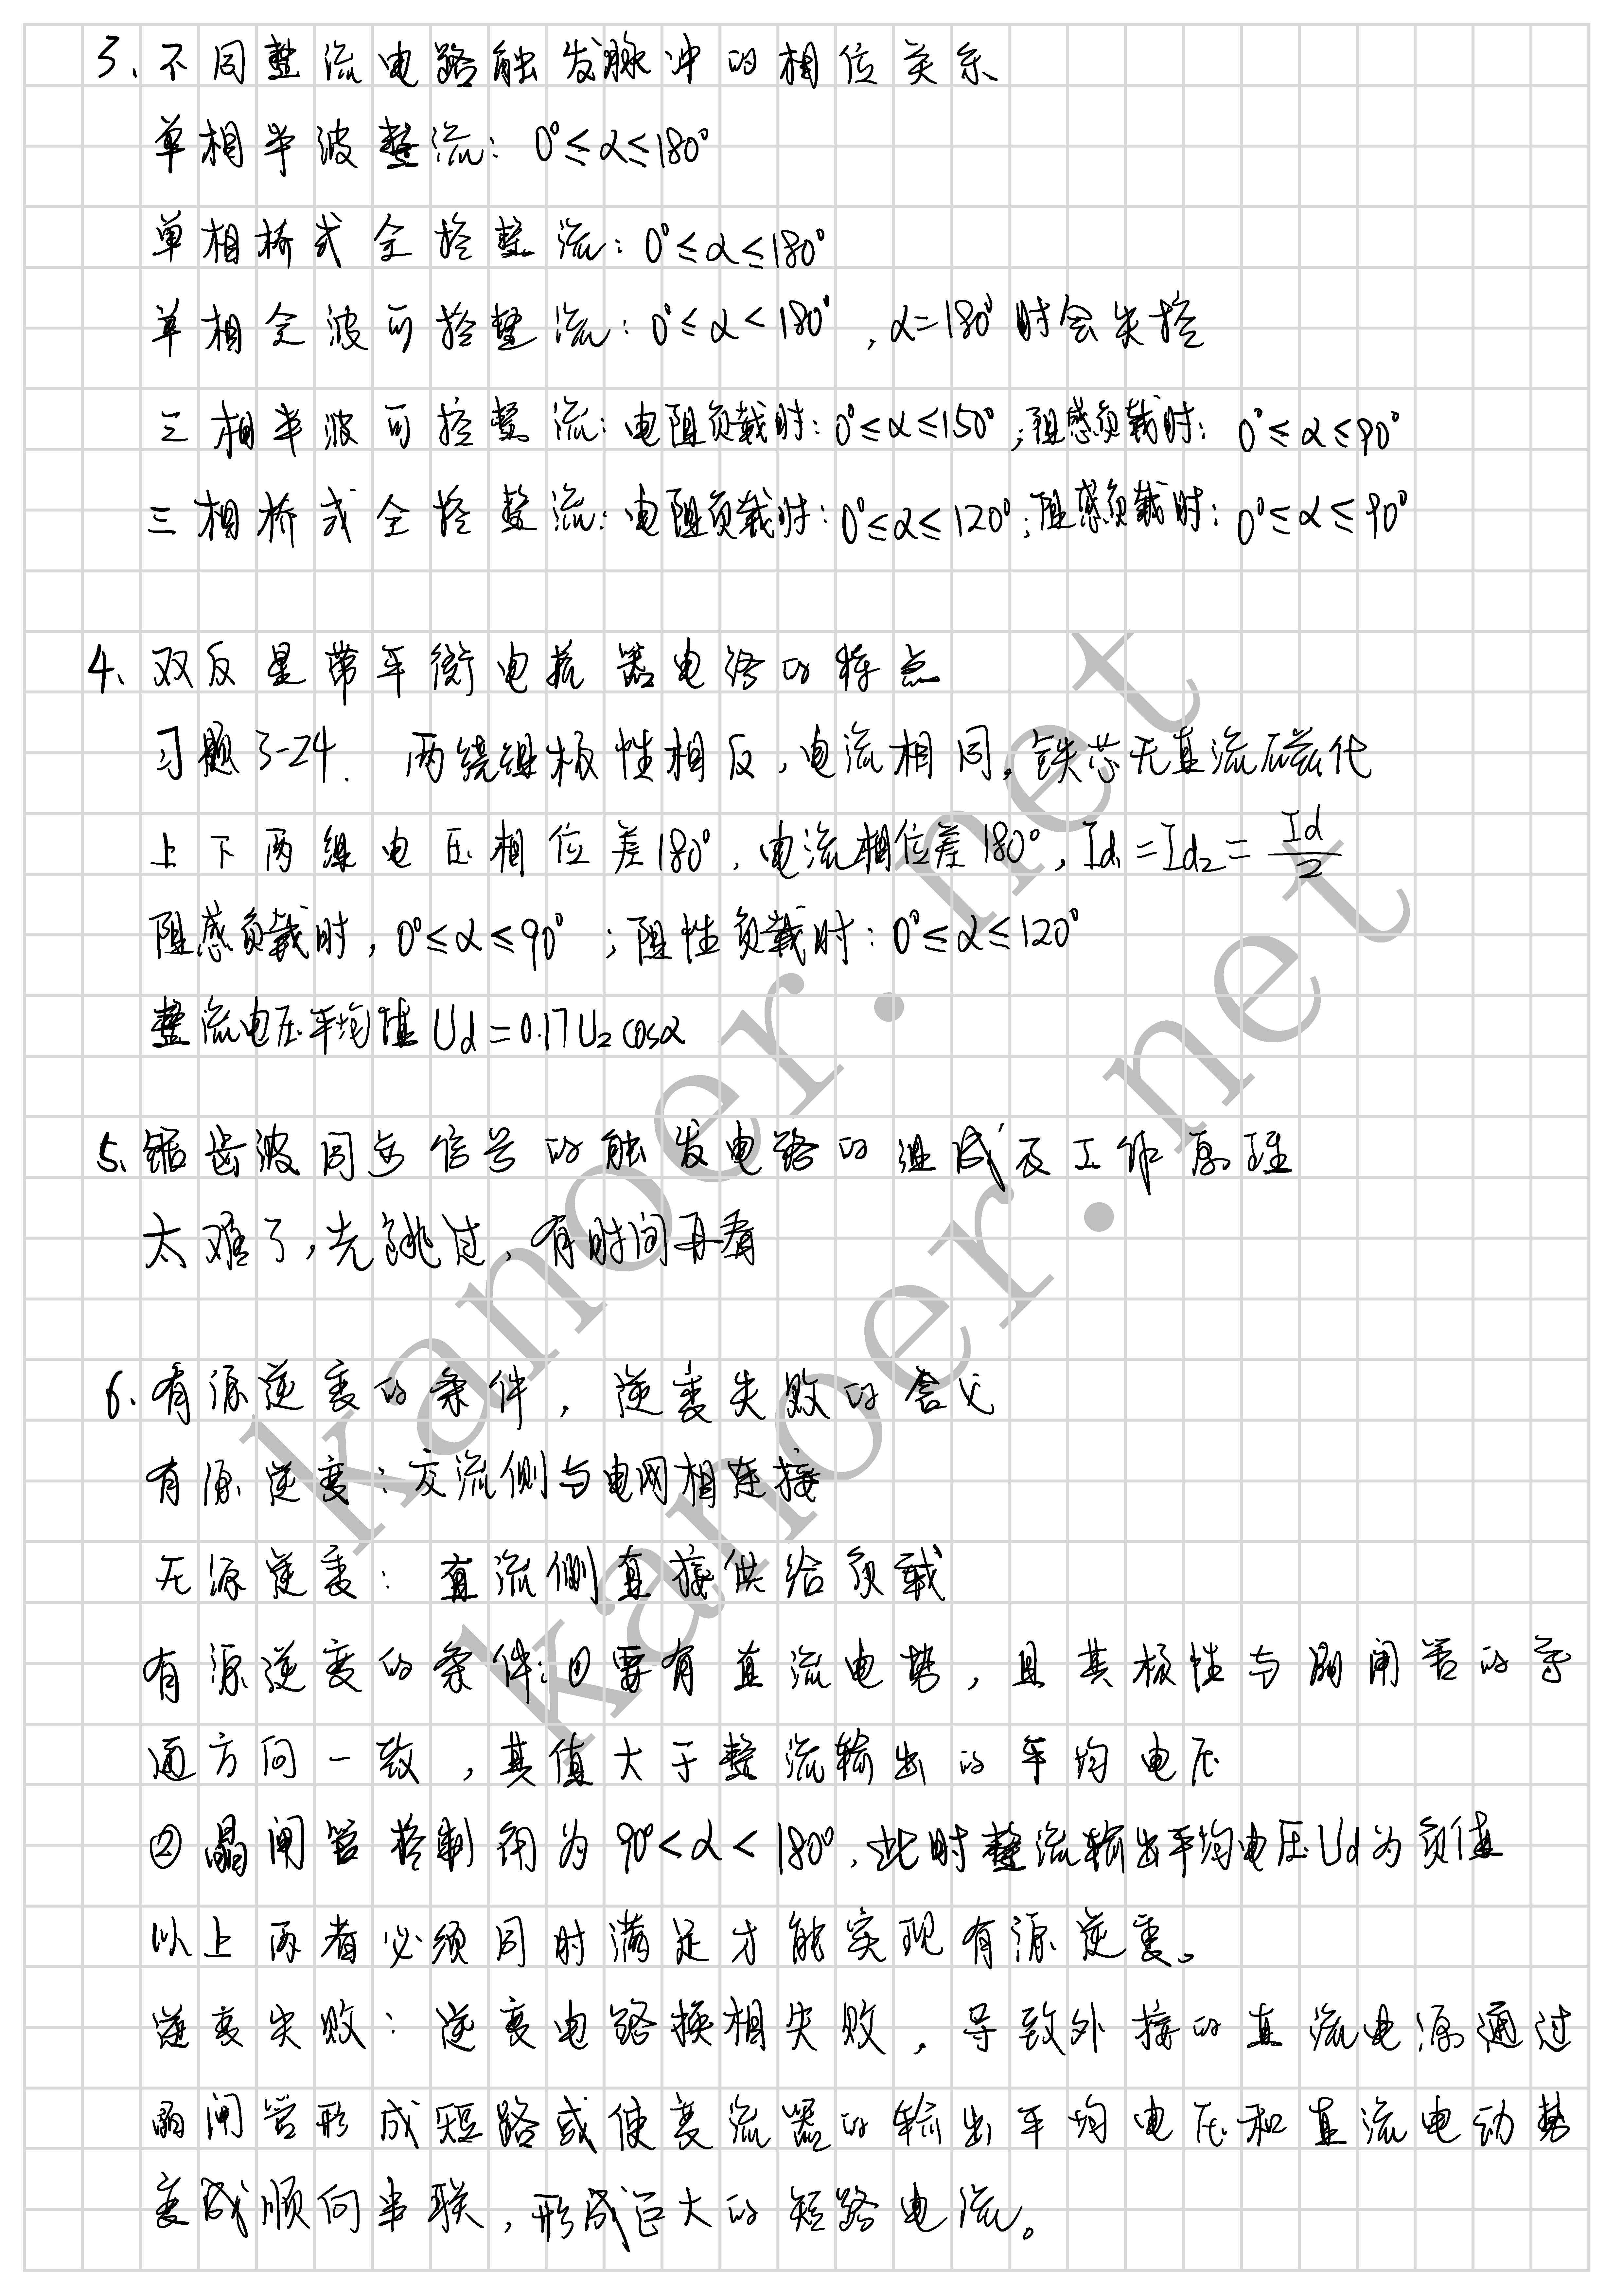 3、不同整流电路触发脉冲的相位关系
单相半波整流：0°≤α≤180°
单相桥式全控整流：0°≤α≤180°
单相全波可控整流：0°≤α<180°，α=180°时会失控
三相半波可控整流：电阻负载时：0°≤α≤150°；阻感负载时：0°≤α≤90°
三相桥式全控整流：电阻负载时：0°≤α≤120°；阻感负载时：0°≤α≤90°
4、双反星带平衡电抗器电路的特点
习题3-24. 两绕组极性相反，电流相同，铁芯无直流磁化
上下两组电压相位差180°，电流相位差180°，Id₁=Id₂=Id/2
阻感负载时，0°≤α≤90°；阻性负载时：0°≤α≤120°
整流电压平均值Ud=0.17U₂cosα
5、锯齿波同步信号的触发电路的组成及工作原理
太难了，先跳过，有时间再看
6、有源逆变的条件，逆变失败的含义
有源逆变：交流侧与电网相连接
无源逆变：直流侧直接供给负载
有源逆变的条件：①要有直流电势，且其极性与晶闸管的导
通方向一致，其值大于整流输出的平均电压
②晶闸管控制角为90°<α<180°，此时整流输出平均电压Ud为负值
以上两者必须同时满足才能实现有源逆变。
逆变失败：逆变电路换相失败，导致外接的直流电源通过
晶闸管形成短路或使变流器的输出平均电压和直流电动势
变成顺向串联，形成巨大的短路电流。
kanoer.net
kanoer.net